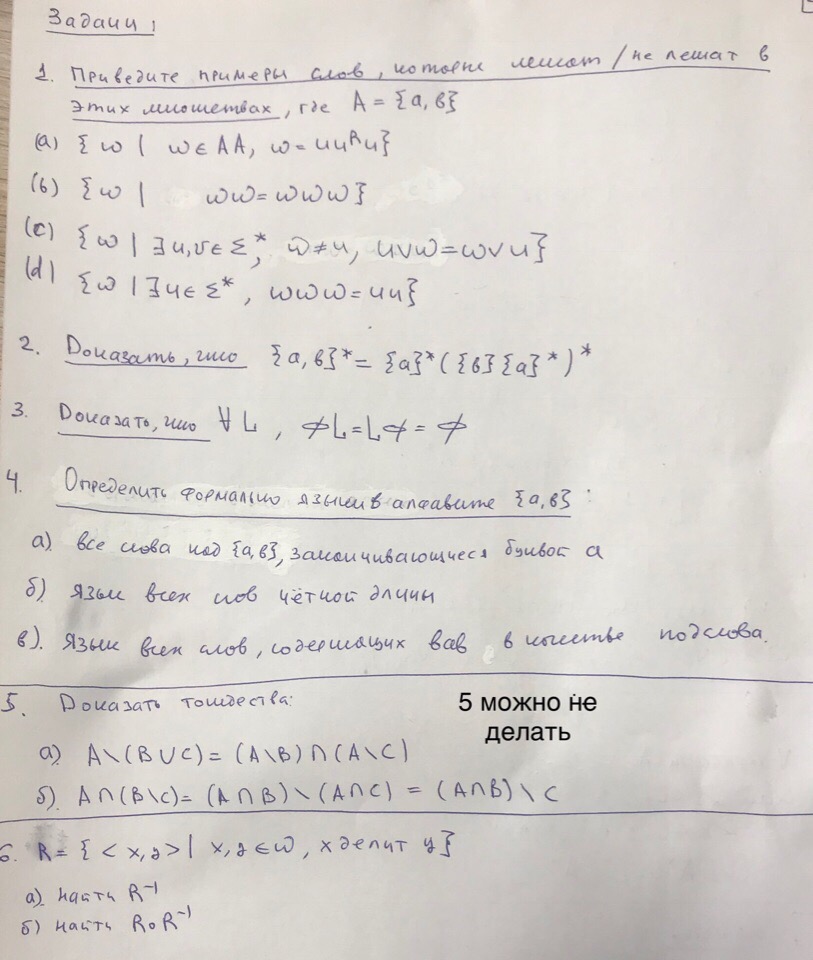 Задачи:
1. Приведите примеры слов, которые лежат / не лежат в
этих множествах, где A = {a, b}
(a) { w | w ∈ AA, w = uuᴿu}
(b) { w | ww = www}
(c) { w | ∃u,v ∈ Σ*, w ≠ u, uvw = wvu}
(d) { w | ∃u ∈ Σ*, www = uu}
2. Доказать, что {a, b}* = {a}*({b}{a}*)*
3. Доказать, что ∀L, ∅L = L∅ = ∅
4. Определить формально языки в алфавите {a, b}:
а) все слова над {a, b}, заканчивающиеся буквой a
б) язык всех слов чётной длины
в). Язык всех слов, содержащих bab в качестве подслова.
5. Доказать тождества:
5 можно не
делать
а) A\(B∪C) = (A\B)∩(A\C)
б). A∩(B\C) = (A∩B)\(A∩C) = (A∩B)\C
6. R = { <x, y> | x, y ∈ ω, x делит y}
а) найти R⁻¹
б) найти R∘R⁻¹